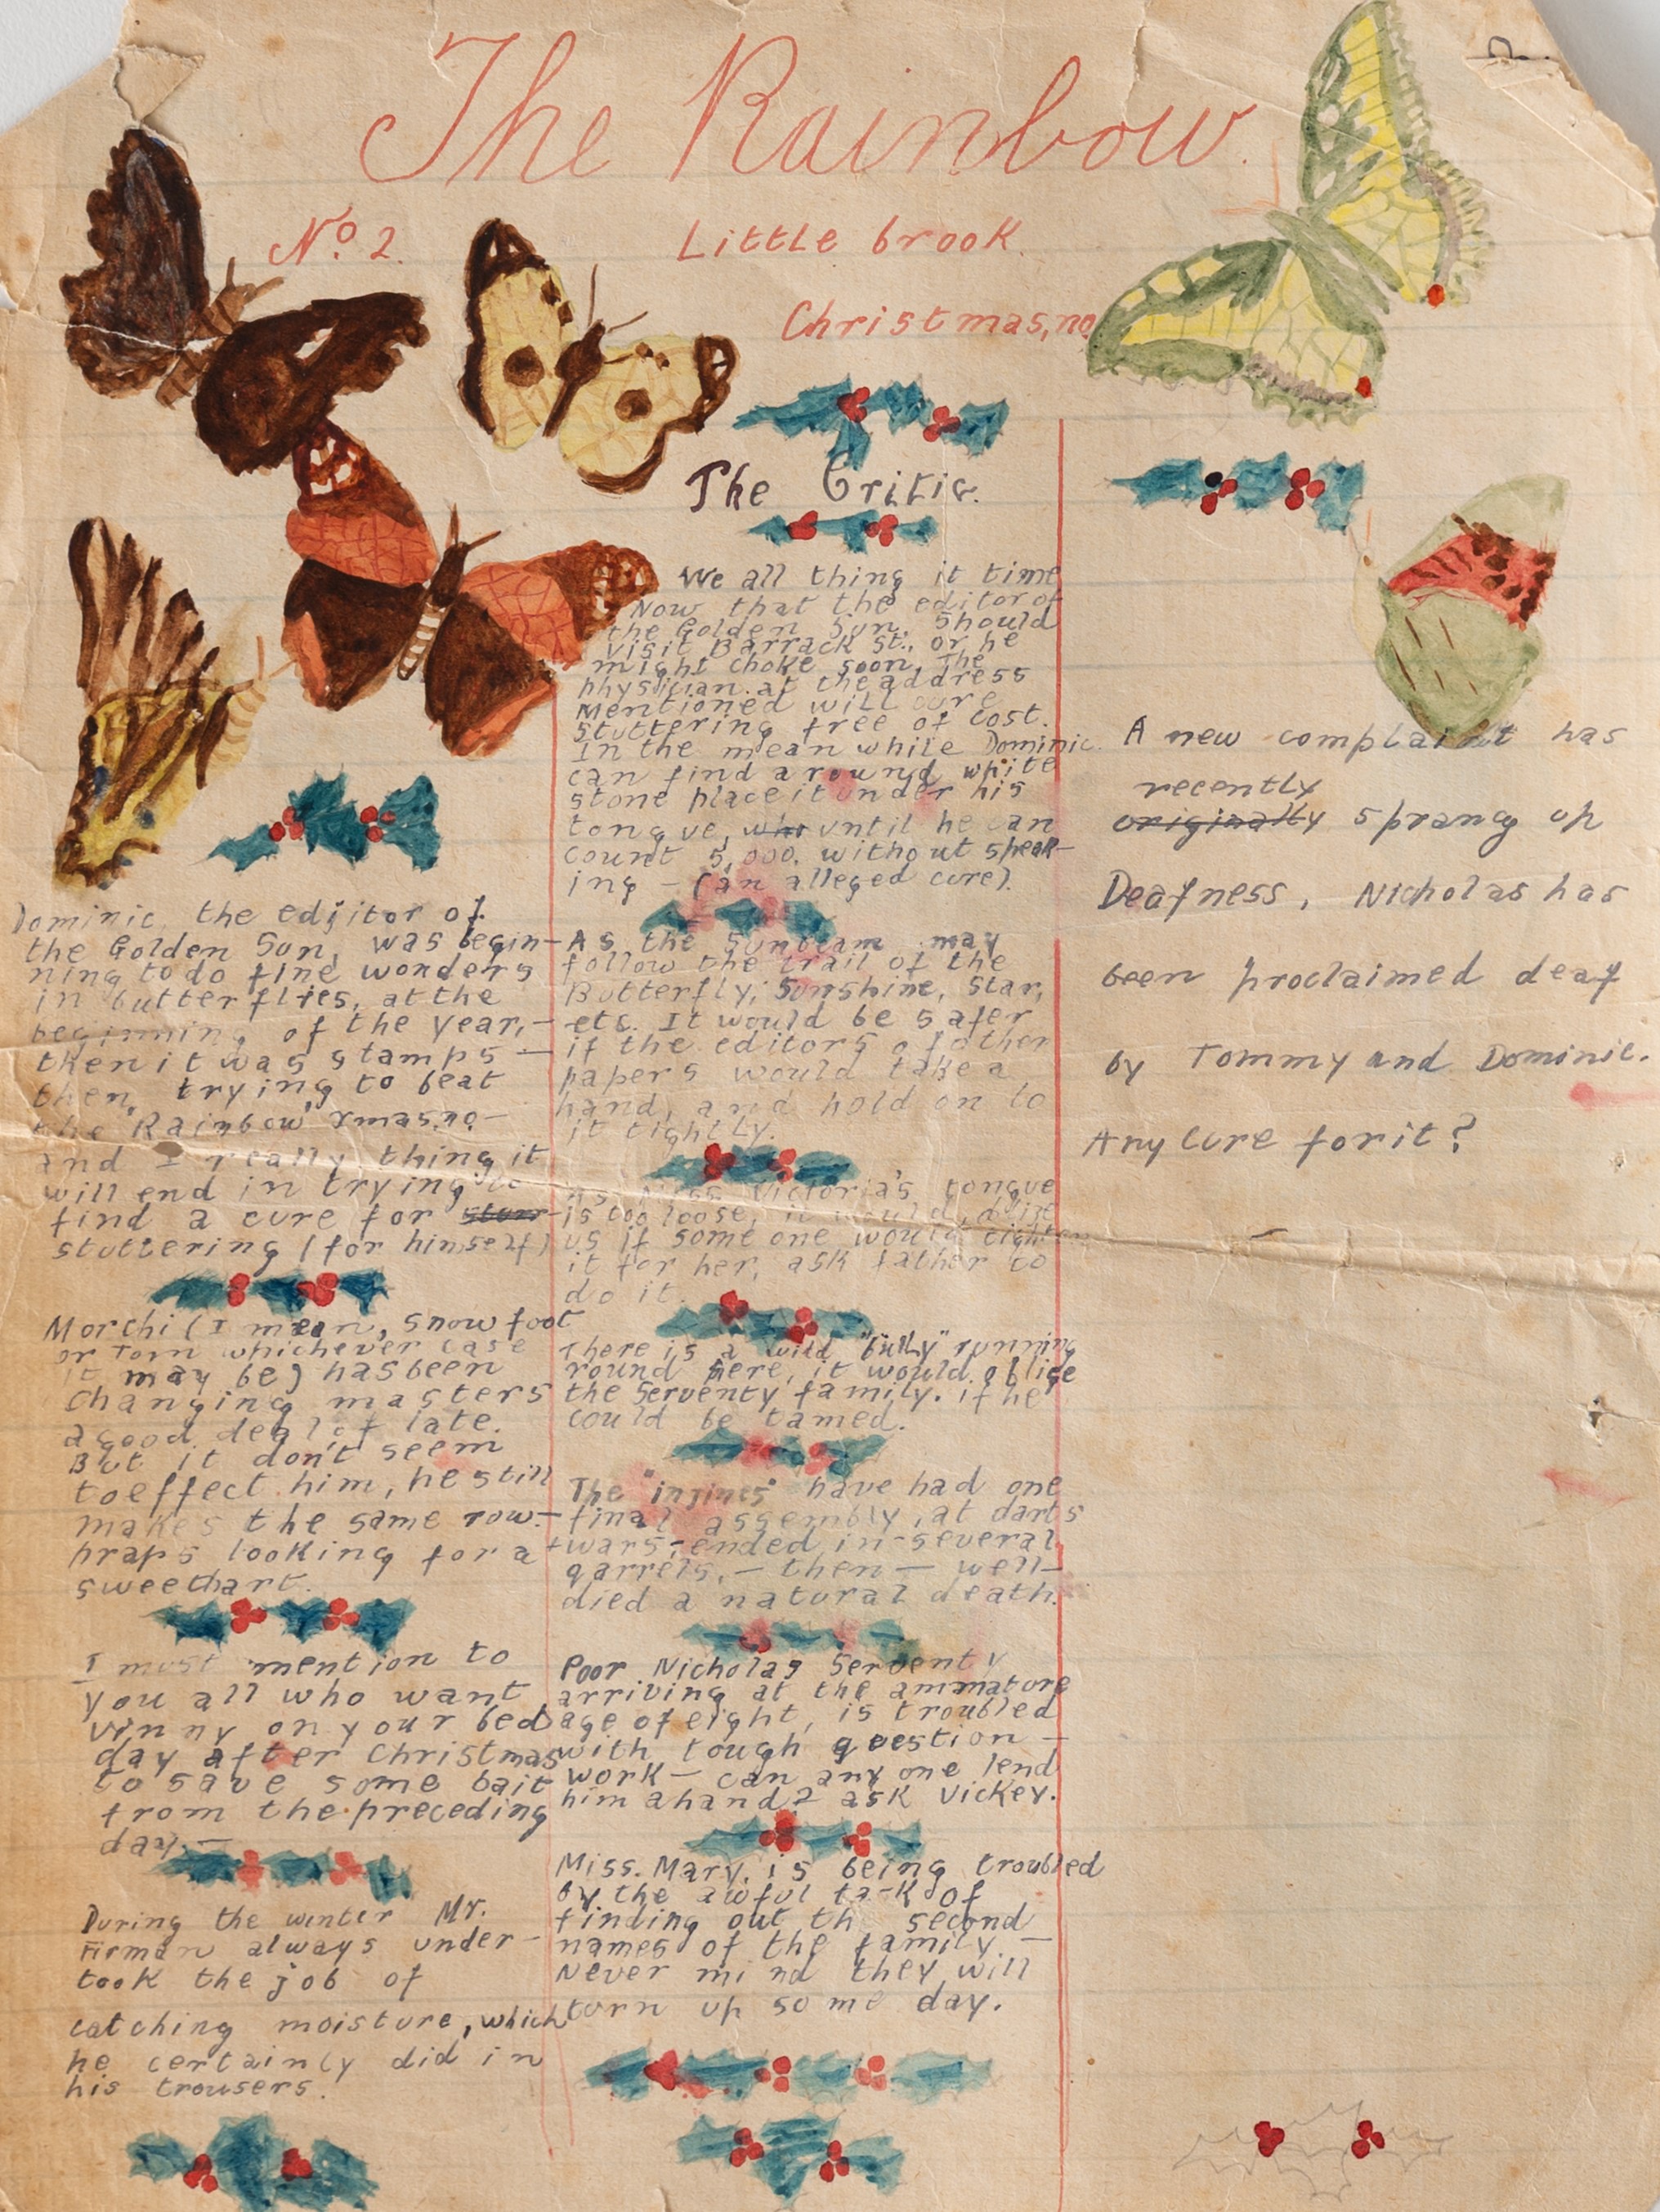 The Rainbow.
No. 2.
Little brook.
Christmas, no.
The Critic.
Dominic, the edjitor of
the Golden Sun, was begin-
ning to do fine wonders
in butterflies, at the
beginning of the year,-
then it was stamps -
then, trying to beat
the 'Rainbow' Xmas.no-
and I really thing it
will end in trying to
find a cure for
stuttering (for himself)
Morchi (I mean, snow foot
or Tom whichever case
it may be) has been
changing masters
a good deal of late.
But it don't seem
to effect him, he still
makes the same row-
praps looking for a
sweethart.
I must mention to
you all who want
vinny on your bed
day after Christmas
to save some bait
from the preceding
day.-
During the winter Mr.
Firman always under-
took the job of
catching moisture, which
he certainly did in
his trousers.
We all thing it time
Now that the editor of
the Golden Sun, Should
visit Barrack St., or he
might choke soon, The
physician. at the address
Mentioned will cure
stuttering free of cost.
In the mean while Dominic.
can find a round white
stone place it under his
tongue, until he can
count 5,000. without speak-
ing - (an alleged cure).
As the Sunbeam may
follow the trail of the
Butterfly; Sunshine, Star,
etc. It would be safer
if the editors of other
papers would take a
hand, and hold on to
it tightly.
As Miss Victoria's tongue
is too loose, it would, oblize
us if some one would tighten
it for her, ask father to
do it.
There is a wild "bully" running
round here, it would. oblige
the Serventy family. if he
could be tamed.
The "injines" have had one
final assembly, at darts
wars-ended in-several
qarrels, - then - well-
died a natural death.
Poor Nicholas Serventy
arriving at the ammature
age of eight, is troubled
with tough question -
work - can any one lend
him a hand? ask Vickey.
Miss. Mary, is being troubled
by the awful task of
finding out the second
names of the family. -
Never mind they will
turn up some day.
A new complaint has
recently
originally sprang up
Deafness, Nicholas has
been proclaimed deaf
by Tommy and Dominic.
Any cure for it?